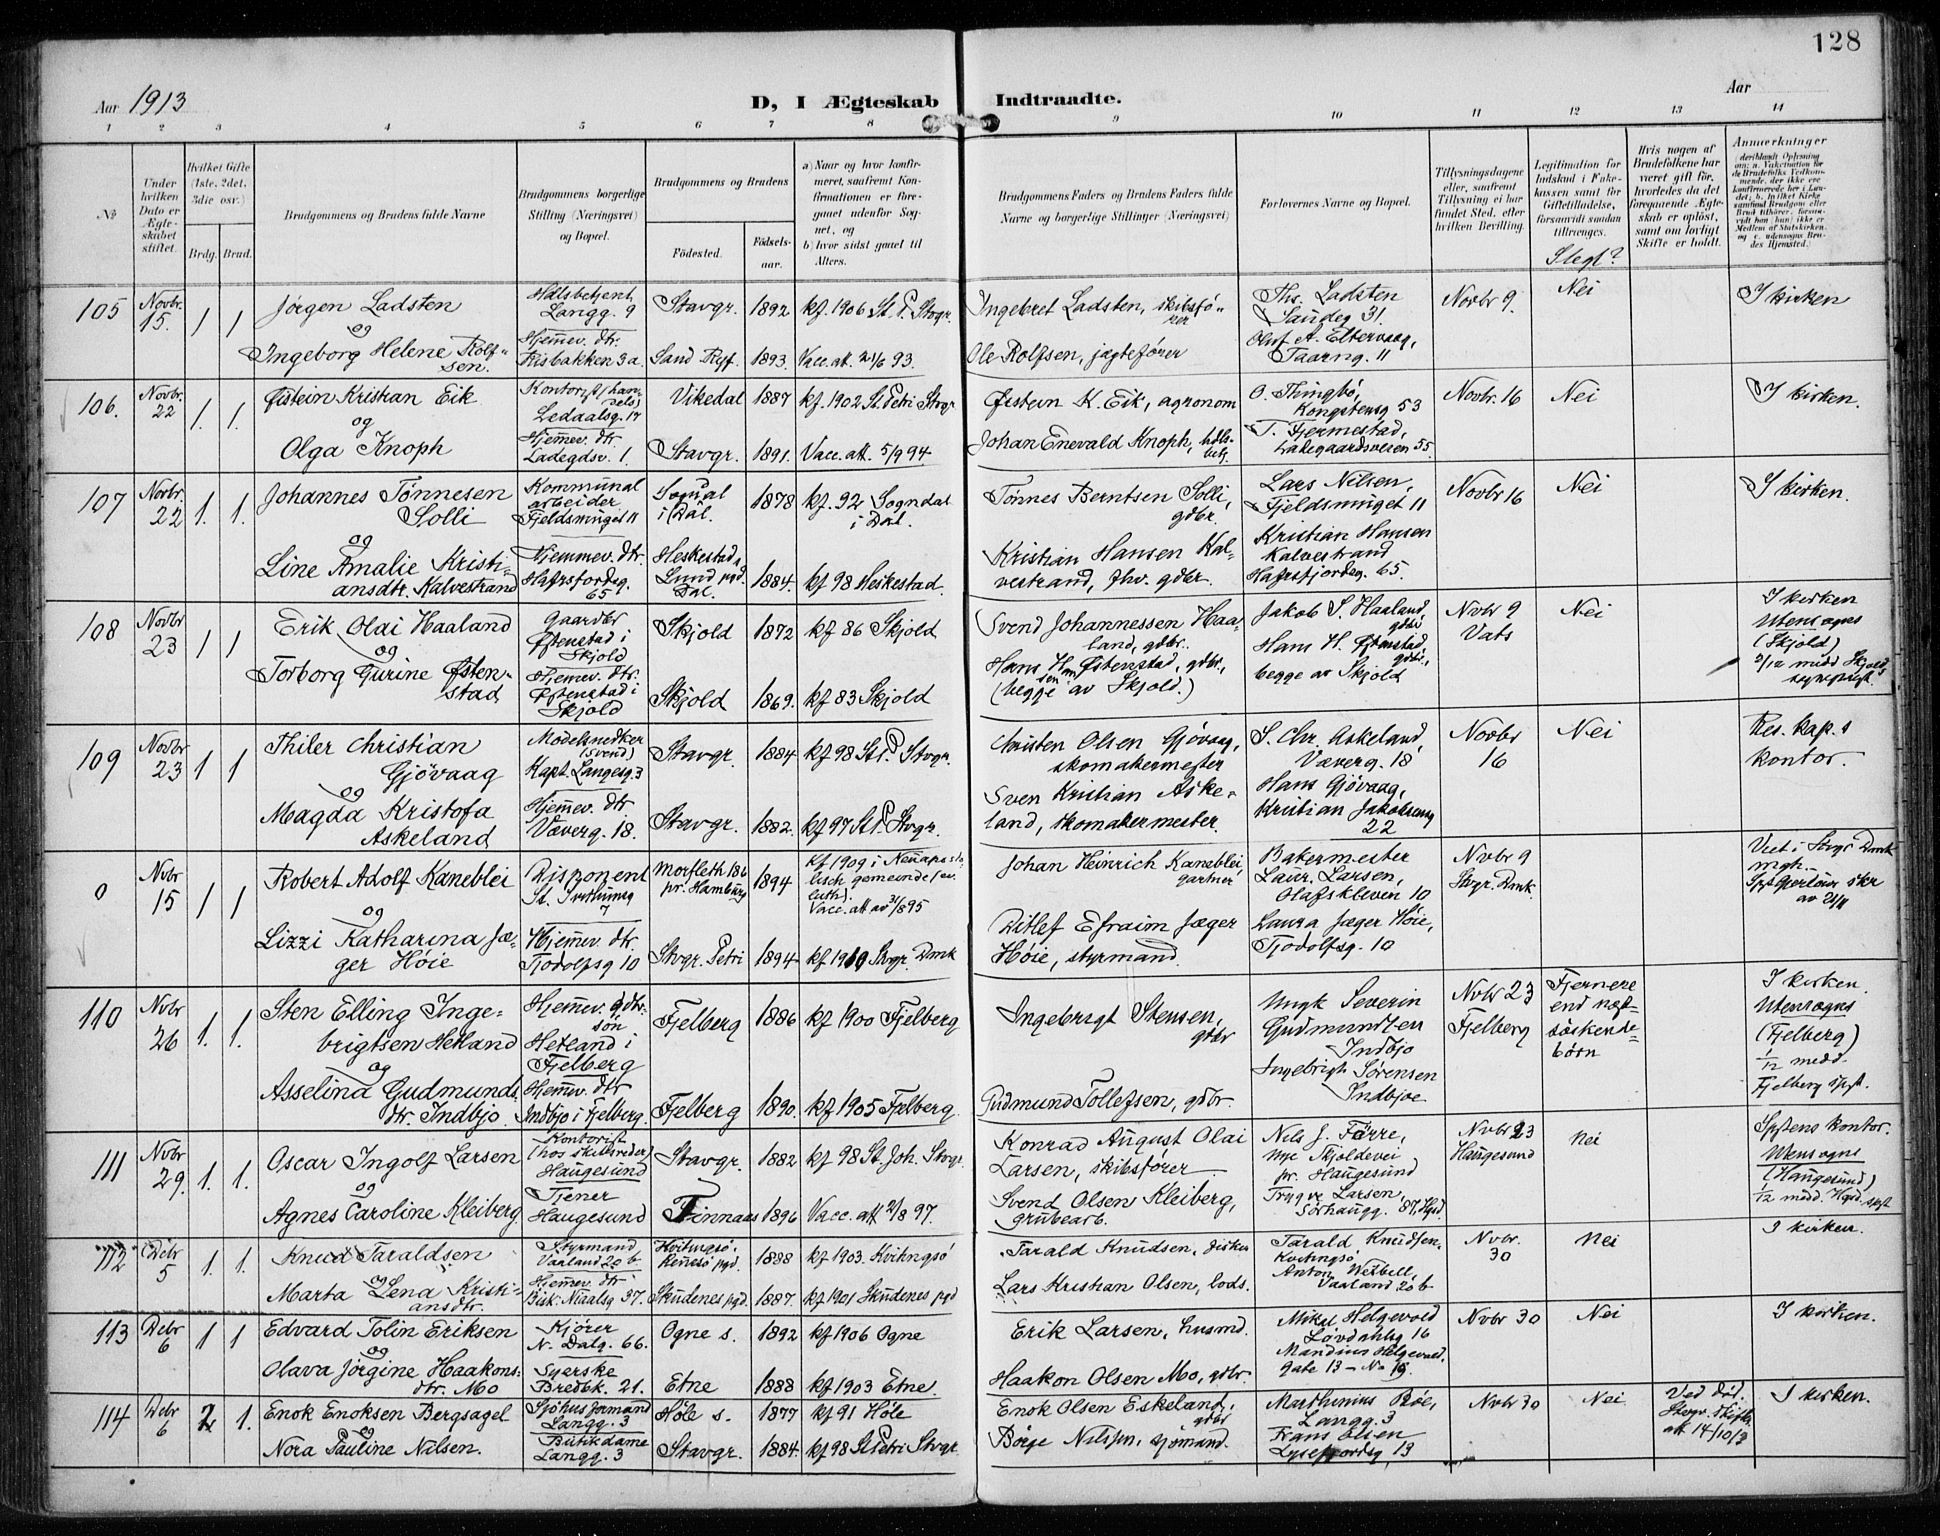 128
Aar 1913
D, I Ægteskab Indtraadte.
Aar
1 2 3 4 5 6 7 8 9 10 11 12 13 14
No
Under hvilken Dato er Ægteskabet stiftet.
Hvilket Gifte (1ste, 2det, 3die osv.)
Brdg. Brud.
Brudgommens og Brudens fulde Navne
Brudgommens borgerlige Stilling (Næringsvei) og Bopæl.
Brudgommens og Brudens
Fødested.
Fødselsaar.
a) Naar og hvor konfirmeret, saafremt Konfirmationen er foregaaet udenfor Sognet, og
b) hvor sidst gaaet til Alters.
Brudgommens Faders og Brudens Faders fulde Navne og borgerlige Stillinger (Næringsvei)
Forlovernes Navne og Bopæl.
Tillysningsdagene eller, saafremt Tillysning ei har fundet Sted, efter hvilken Bevilling.
Legitimation for Indskud i Enkekassen samt for Giftetilladelse, forsaavidt saadan tiltrænges.
Slegt?
Hvis nogen af Brudefolkene har været gift før, hvorledes da det foregaaende Ægteskab er opløst, samt om lovligt Skifte er holdt.
Anmærkninger
105 Novbr. 15. 1 1
Jørgen Ladsten
og
Ingeborg Helene Rolfsen.
Hdlsbetjent
Langg. 9
Hjemmev. dtr.
Risbakken 3a.
Stavgr. 1892 kf. 1906 St. P. Stvgr.
Sand Ryf. 1893. Vacc. att. 21/6 93.
Ingebret Ladsten, skibsfører
Ole Rolfsen, jagtefører
Ths. Ladsten
Sandeg 31.
Oluf A. Eltervaag,
Taarng. 11
Novbr 9.
Nei
I kirken
106. Novbr. 22 1. 1.
Østein Kristian Eik
og
Olga Knoph
Kontorist (handels)
Ledaalsg. 17
Hjemmev. dtr
Ladegdsv. 1.
Vikedal 1887 kf. 1902 St. Petri Stvgr
Stavgr. 1891. Vacc. att. 5/9 94.
Østein K. Eik, agronom
Johan Enevald Knoph, hdlsbetj.
O. Thingbø,
Kongstensg 53
T. Fjermestad,
Ladegaardsveien 55.
Novbr. 16
Nei
I kirken.
107 Novbr. 22 1. 1.
Johannes Tønnesen
Solli
og
Line Amalie Kristiansdtr. Kalvestrand
Kommunal
arbeider
Fjeldsmuget 11
Hjemmev. dtr.
Hafrsfjordg.
65
Sogndal i Dal. 1878 kf. 92 Sogndal i Dal.
Heskestad s.
Lund pgd.
Dal. 1884. kf 98 Heskestad.
Tønnes Berntsen Solli,
gdbr.
Kristian Hansen Kalvestrand, fhv. gdbr.
Lars Nilsen,
Fjeldsmuget 11
Kristian Hansen
Kalvestrand
Hafrsfjordg. 65.
Novbr 16
Nei
I kirken.
108 Novbr 23 1 1
Erik Olai Haaland
og
Torborg Gurine Østenstad
Gaardbr
Østenstad i
Skjold
Hjemev. dtr.
Østenstad i
Skjold
Skjold 1872 kf 86 Skjold
Skjold 1869. kf 83 Skjold
Svend Johannessen Haaland, gdbr.
Hans Hansen Østenstad, gdbr,
(begge av Skjold.)
Jakob S. Haaland,
gdbr
Hans H. Østenstad,
gdbr,
begge av Skjold
Nvbr 9
Vats
Nei
I kirken
Utensogns
(Skjold)
3/12 medd Skjold
sogneprest.
109 Novbr 23 1 1
Thiler Christian
Gjøvaag
og
Magda Kristofa
Askeland
Modelsnedker
(svend)
Kapt. Langesg. 3
Hjemev. dtr
Væverg. 18.
Stavgr. 1884 kf 98 St. P. Stvgr.
Stavgr. 1882. kf 97 St. P. Stvgr.
Christen Olsen Gjøvaag,
skomakermester
Sven Kristian Askeland, skomakermester.
S. Chr. Askeland,
Væverg. 18
Hans Gjøvaag,
Kristian Jakobsensg
22
Novbr
16
Nei
Res. kap.s
kontor.
0 Nvbr 15 1 1
Robert Adolf Kaneblei
og
Lizzi Katharina Jæger Høie
Disponent
St. Svithunsg
7
Hjemev. dtr.
Tjodolfsg 10
Morfleth 186
pr. Hamburg 1894
kf 1909 i Neuaposto
lisch gemeinde (ev.
luth).
Vacc. att av 31/8 95
Stvgr. Petri 1894 kf 1910 Stvgr. Dmk
Johan Heinrich Kaneblei,
gartner
Ditlef Efraim Jæger
Høie, styrmand.
Bakermester
Laur. Larsen,
Olafskleven 10
Laura Jæger Høie,
Tjodolfsg. 10
Nvbr 9
Stvgr. Dmk.
Viet i Stvgr Dmk
mgh.
av 21/11
110 Nvbr 26 1. 1.
Sten Elling Ingebrigtsen Hetland
og
Asselina Gudmundsdtr. Indbjo.
Hjemev. gdbr.
søn
Hetland i
Fjelberg
Hjemev. dtr
Indbjo i Fjelberg.
Fjelberg 1886 kf 1900 Fjelberg
Fjelberg 1890. kf 1905 Fjelberg.
Ingebrigt Stensen,
gdbr
Gudmund Tollefsen, gdbr.
Ungk Severin
Gudmundsen
Indbjo
Ingebrigt Sørensen
Indbjoe
Nvbr 23
Fjelberg
Fjernere
end næst-
søskende-
børn
I kirken.
Utensogns
(Fjelberg)
1/12 medd.
Fjelberg spr.
111 Nvbr 29. 1. 1.
Oscar Ingolf Larsen
og
Agnes Caroline Kleiberg
Kontorist
(hos skibsreder)
Haugesund
Tjener
Haugesund
Stavgr. 1882 kf 98 St. Joh. Stvgr.
Finnaas 1896 Vacc. att 2/8 97.
Konrad August Olai
Larsen, skibsfører
Svend Olsen Kleiberg,
grubearb.
Nils J. Førre,
Nye Skjoldevei
pr. Haugesund
Trygve Larsen,
Sørhaugg. 87, Hgsd.
Nvbr 23
Haugesund
Nei
Sprstens kontor.
Utensogns
(Haugesund)
1/12 medd. Hgsd. sprst
112 Debr 5 1. 1.
Knud Taraldsen
og
Marta Lena Kristiansdtr.
Styrmand
Vaaland 20 b
Hjemev. dtr
Bisk. Njaalsg 37.
Hvitingsø,
Rennesø pgd. 1888 kf 1903. Kvitingsø
Skudenes pgd. 1887. kf 1901 Skudenes pgd
Tarald Knudsen, fisker
Lars Kristian Olsen, lods.
Tarald Knudsen.
Kvitingsø
Anton Westbell,
Vaaland 20 b
Nvbr.
30
Nei
I kirken.
113 Debr 6 1 1
Edvard Tolin Eriksen
og
Olava Jørgine Haakonsdtr. Mo
Kjører
N. Dalg. 66.
Syerske
Bredbk. 21.
Ogne s. 1892 kf 1906 Ogne
Etne 1888 kf 1903 Etne.
Erik Larsen, husmd.
Haakon Olsen Mo, gdbr.
Mikal Helgevold
Løvdahlsg 16
Mandius Helgevold,
Gate 13 – No 19.
Nvbr 30
Nei
I kirken.
114 Debr 6 2 1.
Enok Enoksen Bergsagel
og
Nora Pauline Nilsen.
Sjøhusformand
Langg. 3
Butikdame
Langg. 3
Høle s. 1877 kf 91 Høle
Stavgr. 1884. kf 98 St. Petri Stvgr.
Enok Olsen Eskeland,
gdbr
Børge Nilsen, sjømand.
Marthinius Bøe,
Langg. 3
Frans Olsen
Lysefjordsg 13
Nvbr 30
Nei
Ved død.
Stvgr. skifte
att 14/10/3
I kirken.